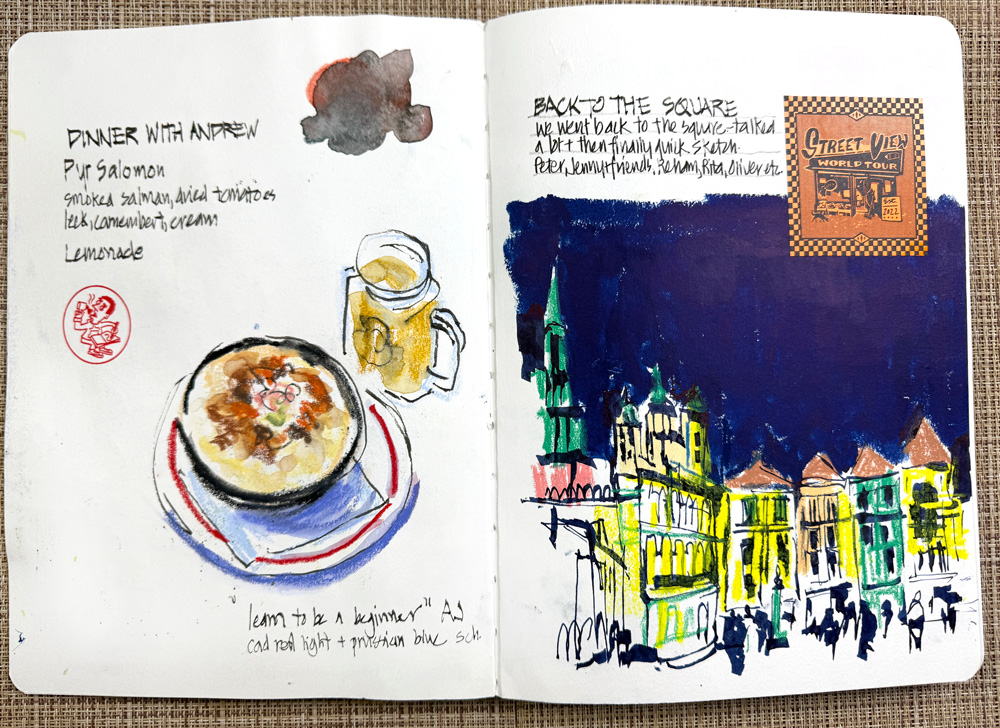 DINNER WITH ANDREW
Pyr Salomon
smoked salman, dried tomatoes
leek, camembert, cream
Lemonade
learn to be a beginner" AJ
cad red light + prussian blue Sch.
BACK TO THE SQUARE
we went back to the square-talked
a bit + then finally quick sketch.
Peter, Jenny + friends, Reham, Rita, Oliver etc
STREET VIEW
WORLD TOUR